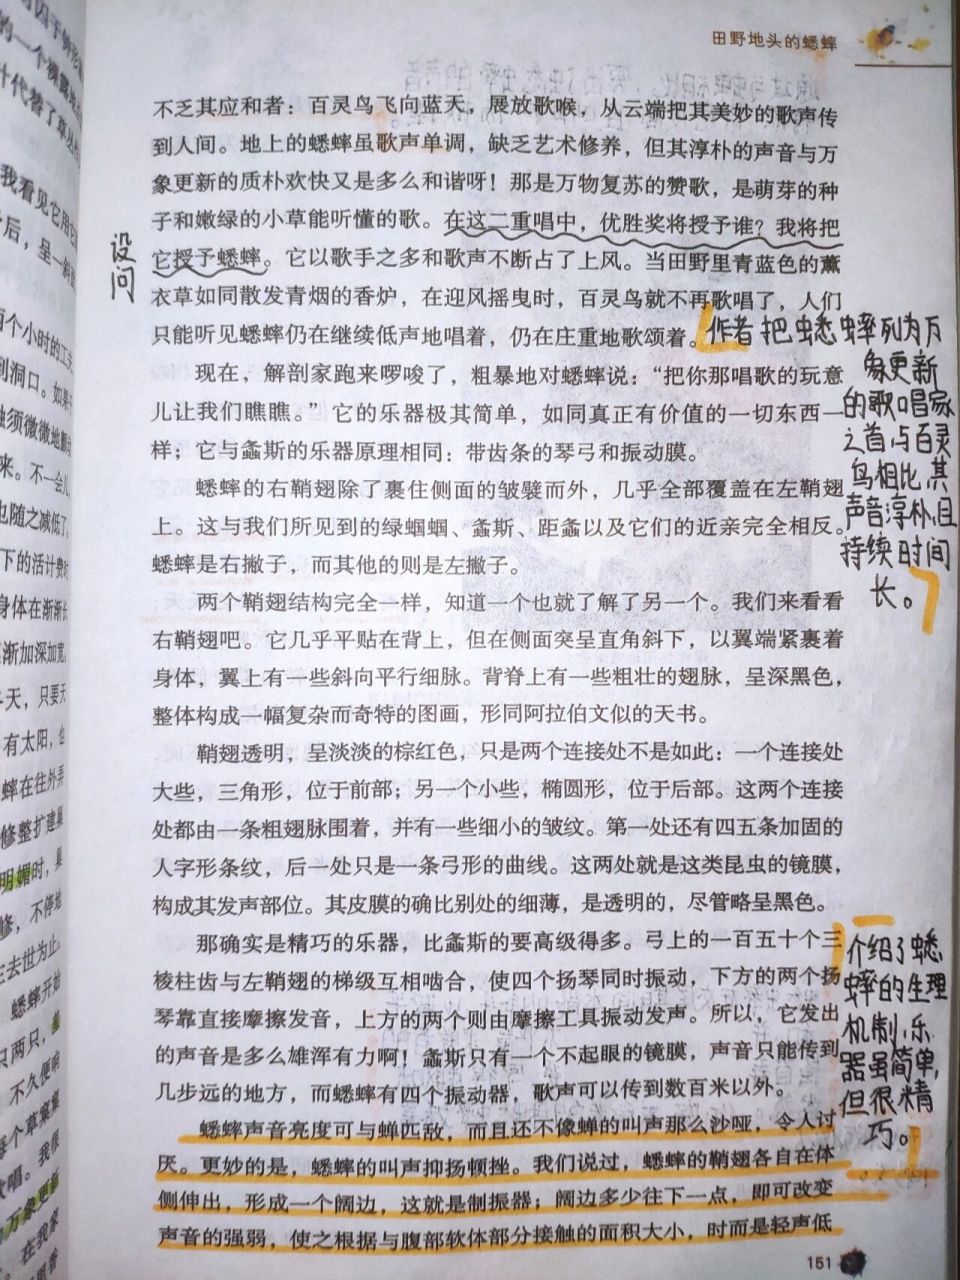 田野地头的蟋蟀
不乏其应和者：百灵鸟飞向蓝天，展放歌喉，从云端把其美妙的歌声传
到人间。地上的蟋蟀虽歌声单调，缺乏艺术修养，但其淳朴的声音与万
象更新的质朴欢快又是多么和谐呀！那是万物复苏的赞歌，是萌芽的种
子和嫩绿的小草能听懂的歌。在这二重唱中，优胜奖将授予谁？我将把
它授予蟋蟀。它以歌手之多和歌声不断占了上风。当田野里青蓝色的薰
衣草如同散发青烟的香炉，在迎风摇曳时，百灵鸟就不再歌唱了，人们
只能听见蟋蟀仍在继续低声地唱着，仍在庄重地歌颂着。
现在，解剖家跑来啰唆了，粗暴地对蟋蟀说：“把你那唱歌的玩意
儿让我们瞧瞧。”它的乐器极其简单，如同真正有价值的一切东西一
样；它与螽斯的乐器原理相同：带齿条的琴弓和振动膜。
蟋蟀的右鞘翅除了裹住侧面的皱襞而外，几乎全部覆盖在左鞘翅
上。这与我们所见到的绿蝈蝈、螽斯、距螽以及它们的近亲完全相反。
蟋蟀是右撇子，而其他的则是左撇子。
两个鞘翅结构完全一样，知道一个也就了解了另一个。我们来看看
右鞘翅吧。它几乎平贴在背上，但在侧面突呈直角斜下，以翼端紧裹着
身体，翼上有一些斜向平行细脉。背脊上有一些粗壮的翅脉，呈深黑色，
整体构成一幅复杂而奇特的图画，形同阿拉伯文似的天书。
鞘翅透明，呈淡淡的棕红色，只是两个连接处不是如此：一个连接处
大些，三角形，位于前部；另一个小些，椭圆形，位于后部。这两个连接
处都由一条粗翅脉围着，并有一些细小的皱纹。第一处还有四五条加固的
人字形条纹，后一处只是一条弓形的曲线。这两处就是这类昆虫的镜膜，
构成其发声部位。其皮膜的确比别处的细薄，是透明的，尽管略呈黑色。
那确实是精巧的乐器，比螽斯的要高级得多。弓上的一百五十个三
棱柱齿与左鞘翅的梯级互相啮合，使四个扬琴同时振动，下方的两个扬
琴靠直接摩擦发音，上方的两个则由摩擦工具振动发声。所以，它发出
的声音是多么雄浑有力啊！螽斯只有一个不起眼的镜膜，声音只能传到
几步远的地方，而蟋蟀有四个振动器，歌声可以传到数百米以外。
蟋蟀声音亮度可与蝉匹敌，而且还不像蝉的叫声那么沙哑，令人讨
厌。更妙的是，蟋蟀的叫声抑扬顿挫。我们说过，蟋蟀的鞘翅各自在体
侧伸出，形成一个阔边，这就是制振器；阔边多少往下一点，即可改变
声音的强弱，使之根据与腹部软体部分接触的面积大小，时而是轻声低
151
设
问
作者把蟋蟀列为万
象更新
的歌唱家
之首，与百灵
鸟相比，其
声音淳朴，且
持续时间
长。
介绍了蟋
蟀的生理
机制，乐
器虽简单，
但很精
巧。
的一个
叶代替了草丛
我看见它用它
后，呈一斜
两个小时的工
到洞口。如果
触须微微地颤
来。不一会儿
也随之减低了，
下的活计费时
身体在渐渐长
渐加深加宽，
天，只要天
有太阳，也
蟀在往外弄
修整扩建巢
明媚时，巢
修，不停地
去世为止。
蟋蟀开始
只两只，
不久便响
每个草窠
歌唱。我很
万象更新
在我家